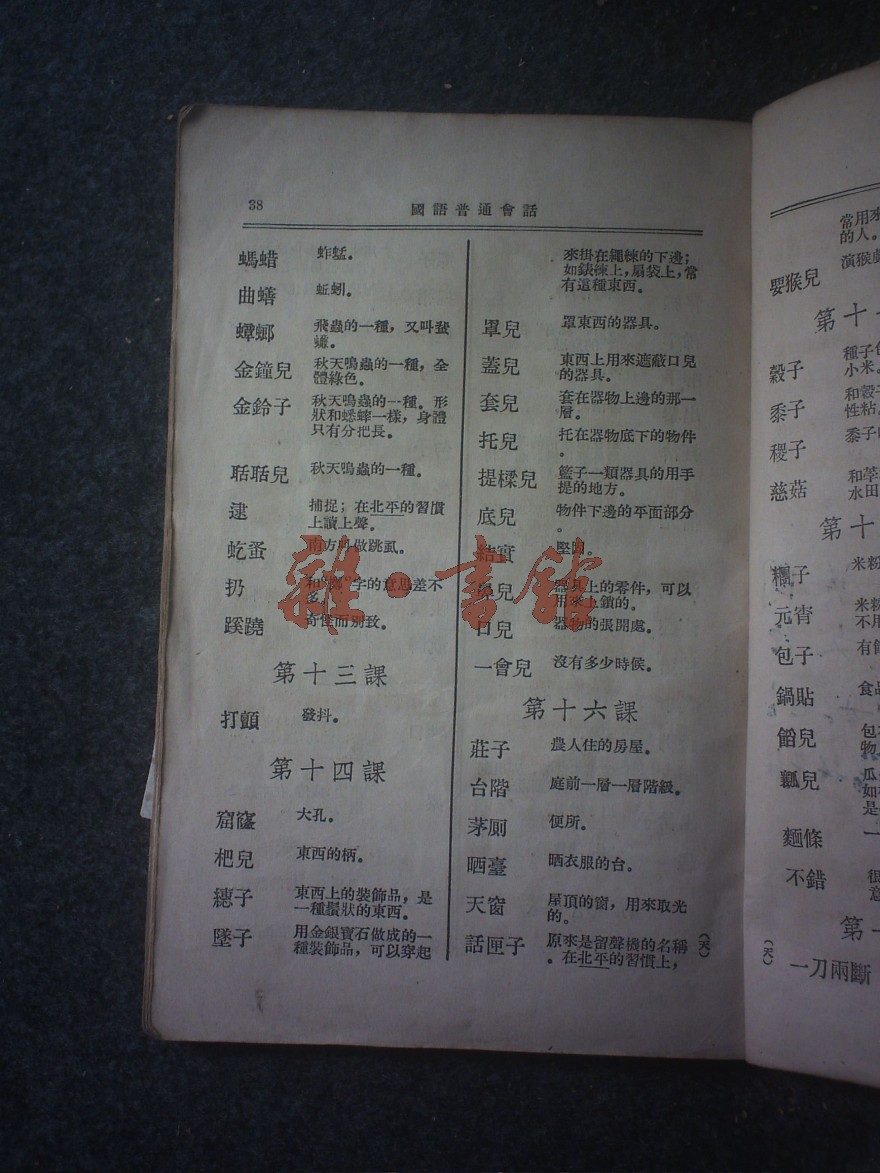 38
國語普通會話
螞蜡 蚱蜢。
曲蟮 蚯蚓。
蟑螂 飛蟲的一種，又叫蜚
蠊。
金鐘兒 秋天鳴蟲的一種，全
體綠色。
金鈴子 秋天鳴蟲的一種。形
狀和蟋蟀一樣，身體
只有分把長。
聒聒兒 秋天鳴蟲的一種。
逮 捕捉；在北平的習慣
上讀上聲。
虼蚤 南方叫做跳虱。
扔 和"擲"字的意思差不
多。
蹊蹺 奇怪而別致。
第十三課
打顫 發抖。
第十四課
窟窿 大孔。
杷兒 東西的柄。
繐子 東西上的裝飾品，是
一種鬚狀的東西。
墜子 用金銀寶石做成的一
種裝飾品，可以穿起
來掛在繩楝的下邊；
如錶楝上，扇袋上，常
有這種東西。
罩兒 罩東西的器具。
蓋兒 東西上用來遮蔽口兒
的器具。
套兒 套在器物上邊的那一
層。
托兒 托在器物底下的物件
。
提樑兒 籃子一類器具的用手
提的地方。
底兒 物件下邊的平面部分
。
結實 堅固。
兒 器具上的零件，可以
用來上鎖的。
口兒 器物的張開處。
一會兒 沒有多少時候。
第十六課
莊子 農人住的房屋。
台階 庭前一層一層階級。
茅厠 便所。
晒臺 晒衣服的台。
天窗 屋頂的窗，用來取光
的。
話匣子 原來是留聲機的名稱
。在北平的習慣上，
（天）
常用來
的人。
耍猴兒 演猴戲
第十
穀子 種子
小米。
黍子 和穀子
性粘。
稷子 黍子
慈菇 和荸
水田
第十
糰子 米粉
元宵 米粉
不用
包子 有餡
鍋貼 食品
餡兒 包
物
瓤兒 瓜
如
是
麵條 一
不錯 很
意
第
一刀兩斷
（天）
雜·書館